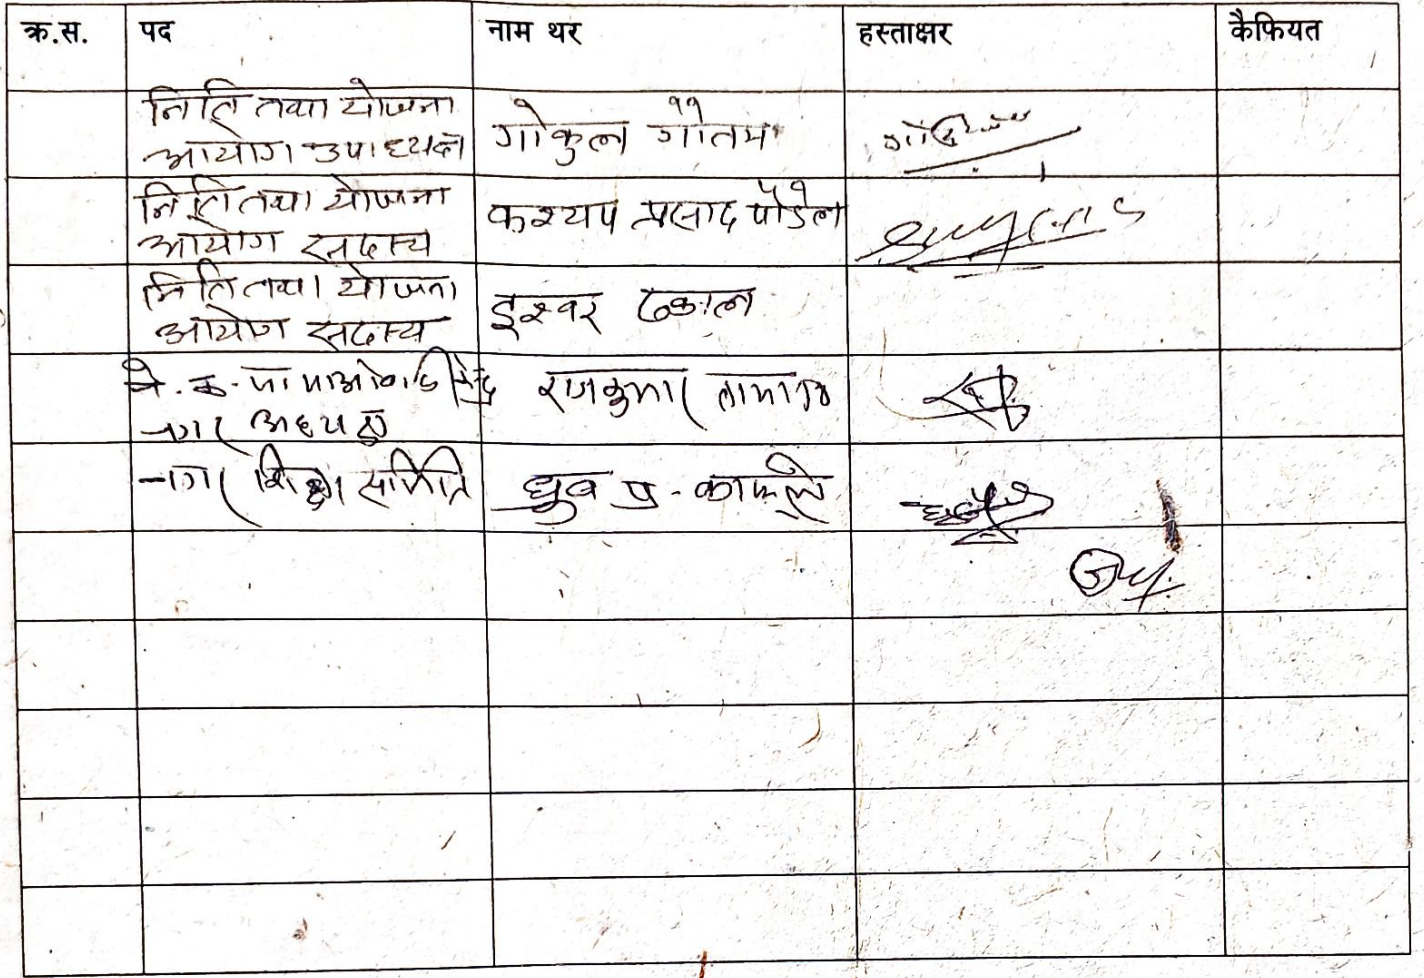 क्र.स. पद नाम थर हस्ताक्षर कैफियत
निति तथा योजना
आयोग उपाध्यक्ष गोकुल गौतम
निति तथा योजना
आयोग सदस्य कश्यप प्रसाद पौडेल
निति तथा योजना
आयोग सदस्य इश्वर ढकाल
ने.क.पा माओवादी केन्द्र राजकुमार तामाङ
नगर अध्यक्ष
नगर शिक्षा समिति ध्रुव प्र. काफ्ले